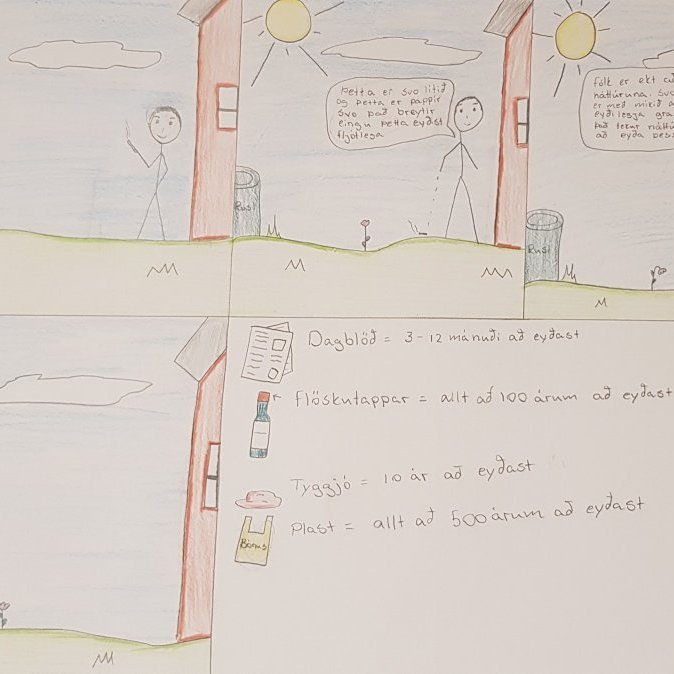 Þetta er svo lítið
og þetta er pappír
svo það breytir
eingu þetta eyðist
fljótlega
Rusl
Fólk er ekt
náttúruna. Svo
er með mikið
eyðileggja
það tekur
að eyða
Rusl
Dagblöð = 3-12 mánuði að eyðast
flöskutappar = allt að 100 árum að eyðast
Tyggjó = 10 ár að eyðast
Plast = allt að 500 árum að eyðast
Bónus